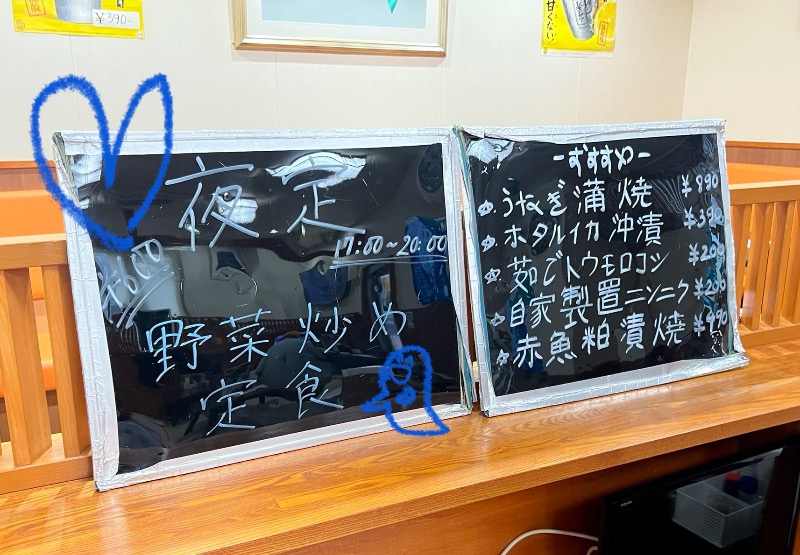 ¥390-
甘くない!
夜定
17:00~20:00
野菜炒め
定食
-おすすめ-
うなぎ蒲焼 ¥890
ホタルイカ沖漬 ¥390
茹でトウモロコシ ¥200
自家製置ニンニク ¥200
赤魚粕漬焼 ¥490